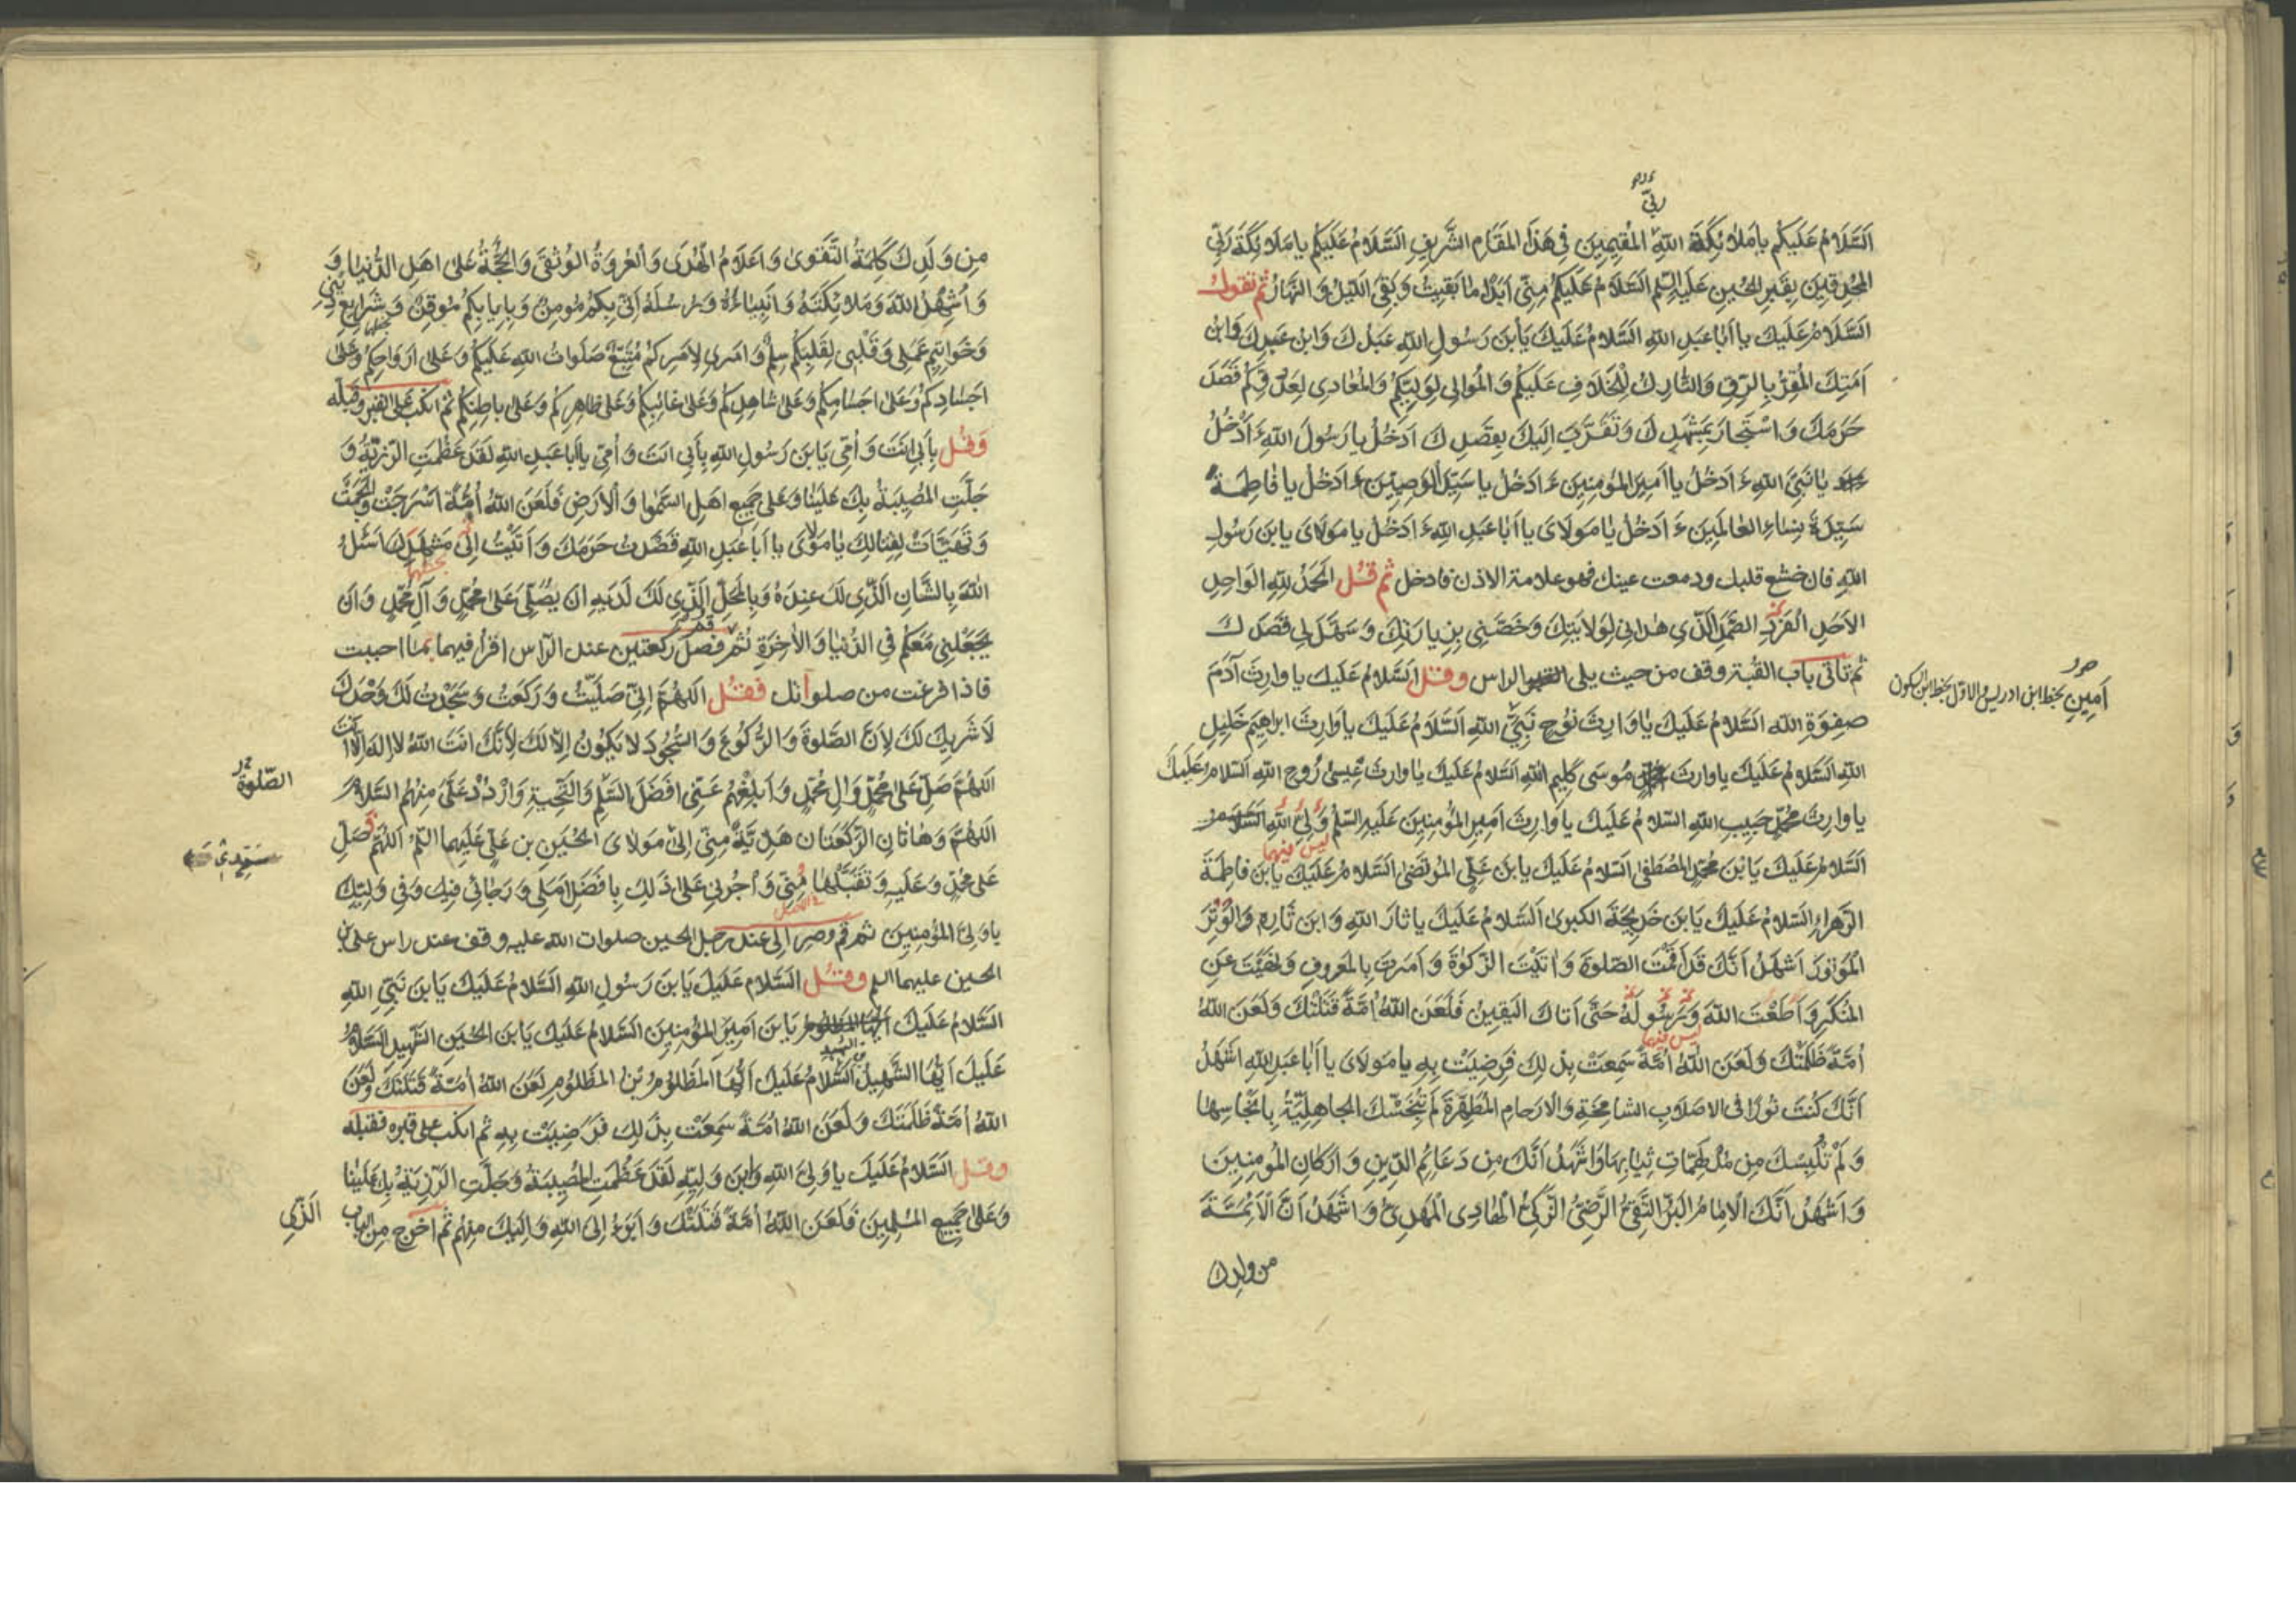 ربّي
اَلسَّلَامُ عَلَيْكُمْ يا مَلائِكَةَ اللهِ المُقِيمِينَ فِي هَذَا المَقَامِ الشَّرِيفِ السَّلَامُ عَلَيْكُمْ يا مَلَائِكَةَ رَبِّي
المُحْدِقِينَ بِقَبْرِ الحُسَيْنِ عَلَيْهِ السّلم السَّلَامُ عَلَيْكُمْ مِنّي اَبَدًا ما بَقِيتُ وَبَقِيَ اللَّيْلُ وَالنَّهَارُ ثم تقول
السَّلَامُ عَلَيْكَ يا اَبا عَبْدِ اللهِ السَّلَامُ عَلَيْكَ يَا بْنَ رَسُولِ اللهِ عَبْدُكَ وَابْنُ عَبْدِكَ وَابْنُ
اَمَتِكَ المُقِرُّ بِالرِّقِّ وَالتَّارِكُ لِلْخِلَافِ عَلَيْكُمْ وَالمُوالِي لِوَلِيِّكُمْ وَالمُعَادِي لِعَدُوِّكُمْ قَصَدَ
حَرَمَكَ وَاسْتَجَارَ بِمَشْهَدِكَ وَتَقَرَّبَ اِلَيْكَ بِقَصْدِكَ اَدْخُلُ يا رَسُولَ اللهِ ءَاَدْخُلُ
يَا نَبِيَّ اللهِ ءَاَدْخُلُ يا اَمِيرَ المُؤمِنِينَ ءَاَدْخُلُ يا سَيِّدَ الوَصِيّينَ ءَاَدْخُلُ يا فاطِمَةُ
سَيِّدَةَ نِساءِ العالَمِينَ ءَاَدْخُلُ يا مَوْلَايَ يا اَبا عَبْدِ اللهِ ءَاَدْخُلُ يا مَوْلَايَ يا بْنَ رَسُولِ
اللهِ فان خشع قلبك ودمعت عينك فهو علامة الاذن فادخل ثم قُل الحَمْدُ لِلّهِ الوَاحِدِ
الاَحَدِ الفَرْدِ الصَّمَدِ الَّذِي هَدَانِي لِوَلَايَتِكَ وَخَصَّنِي بِزِيَارَتِكَ وَسَهَّلَ لِي قَصْدَكَ
ثم تاتي باب القبّة وقف من حيث يلي الراس وقل اَلسَّلَامُ عَلَيْكَ يا وارِثَ آدَمَ
صِفْوَةِ اللهِ السَّلَامُ عَلَيْكَ يَا وَارِثَ نُوْحٍ نَبِيِّ اللهِ اَلسَّلَامُ عَلَيْكَ يا وَارِثَ ابراهِيمَ خَلِيلِ
اللهِ السَّلَامُ عَلَيْكَ يا وارِثَ مُوسَى كَلِيمِ اللهِ السَّلَامُ عَلَيْكَ يا وارِثَ عِيسى رُوحِ اللهِ السّلامُ عَلَيْكَ
يا وارِثَ مُحَمَّدٍ حَبِيبِ اللهِ السَّلامُ عَلَيْكَ يا وارِثَ اَمِيرِ المُؤْمِنِينَ عَلَيْهِ السّلم وَلِيِّ اللهِ
ليس فيهما
السَّلَامُ عَلَيْكَ يَا بْنَ مُحَمَّدٍ المُصْطَفى السَّلامُ عَلَيْكَ يا بْنَ عَلِيٍّ المُرْتَضى السَّلامُ عَلَيْكَ يا بْنَ فاطِمَةَ
الزَّهراءِ السَّلامُ عَلَيْكَ يَا بْنَ خَدِيجَةَ الكبرى السَّلامُ عَلَيْكَ يا ثارَ اللهِ وَابْنَ ثَارِهِ وَالوِتْرَ
المَوْتُورَ اَشْهَدُ اَنَّكَ قَدْ اَقَمْتَ الصَّلوةَ وَاتَيْتَ الزَّكوةَ وَاَمَرْتَ بِالمَعْرُوفِ وَنَهَيْتَ عَنِ
المُنْكَرِ وَاَطَعْتَ اللهَ وَرَسُولَهُ حَتّى اَتاكَ اليَقِينُ فَلَعَنَ اللهُ اُمَّةً قَتَلَتْكَ وَلَعَنَ اللهُ
ليس فيهما
اُمَّةً ظَلَمَتْكَ وَلَعَنَ اللهُ اُمَّةً سَمِعَتْ بِذلِكَ فَرَضِيَتْ بِهِ يا مَوْلَايَ يا اَبا عَبْدِ اللهِ اَشْهَدُ
اَنَّكَ كُنْتَ نُورًا فى الاصْلَابِ الشامِخَةِ وَالارْحامِ المُطَهَّرَةِ لَمْ تُنَجِّسْكَ الجاهِلِيَّةُ بِاَنْجاسِها
وَلَمْ تُلْبِسْكَ مِنْ مُدْلَهِمّاتِ ثِيابِهَا وَاَشْهَدُ اَنَّكَ مِنْ دَعَائِمِ الدِّينِ وَاَرْكانِ المُؤْمِنِينَ
وَاَشْهَدُ اَنَّكَ الاِمَامُ البَرُّ التَّقِيُّ الرَّضِيُّ الزَّكِيُّ الهادِي المَهْدِيُّ وَاَشْهَدُ اَنَّ الاَئِمَّةَ
من ولدك
اَمِينِ بخط ابن ادريس والاول بخط ابن السكون
مِنْ وَلَدِكَ كَلِمَةُ التَّقْوى وَاَعْلَامُ الهُدَى وَالْعُرْوَةُ الوُثْقَى وَالحُجَّةُ عَلى اهْلِ الدُّنيا وَ
وَاُشْهِدُ اللهَ وَمَلائِكَتَهُ وَاَنْبِياءَهُ وَرُسُلَهُ اَنّي بِكُمْ مُومِنٌ وَبِاِيَابِكُمْ مُوقِنٌ وَشَرايِعِ دِيْنِي
وَخَواتِيمِ عَمَلِي وَقَلْبِي لِقَلْبِكُمْ سِلْمٌ وَامْرِي لاَمْرِكُمْ مُتَّبِعٌ صَلَواتُ اللهِ عَلَيْكُمْ وَعَلى اَرْوَاحِكُمْ وَعَلى
اجْسادِكُمْ وَعَلى اجْسَامِكُمْ وَعَلى شاهِدِكُمْ وَعَلى غائِبِكُمْ وَعَلى ظاهِرِكُمْ وَعَلى باطِنِكُمْ ثم انكب على القبر وقبله
وَقُل بِاَبي اَنْتَ وَاُمّي يَا بْنَ رَسُولِ اللهِ بِاَبي انْتَ وَاُمّي يا ابا عَبْدِ اللهِ لَقَدْ عَظُمَتِ الرَّزِيَّةُ وَ
جَلَّتِ المُصِيبَةُ بِكَ عَلَيْنا وَعَلى جَمِيعِ اهْلِ السَّموا وَالْاَرْضِ فَلَعَنَ اللهُ اُمَّةً اَسْرَجَتْ وَاَلْجَمَتْ
وَتَهَيَّأَتْ لِقِتالِكَ يا مَوْلايَ يا اَبا عَبْدِ اللهِ قَصَدْتُ حَرَمَكَ وَاَتَيْتُ اِلى مَشْهَدِكَ اَسْئَلُ
اللهَ بِالشَّانِ الَّذِي لَكَ عِنْدَهُ وَبِالمَحَلِّ الَّذِي لَكَ لَدَيْهِ انْ يُصَلِّيَ عَلى مُحَمَّدٍ وَآلِ مُحَمَّدٍ وَانْ
يَجْعَلَنِي مَعَكُمْ فِي الدُّنْيا وَالاخِرَةِ ثم قم فصل ركعتين عند الراس اقرأ فيهما بما احببت
فاذا فرغت من صلواتك فقُل اللهُمَّ اِنّي صَلَّيْتُ وَرَكَعْتُ وَسَجَدْتُ لَكَ وَحْدَكَ
لَا شَرِيكَ لَكَ لِاَنَّ الصَّلوةَ وَالرُّكُوعَ وَالسُّجُودَ لا يَكُونُ اِلّا لَكَ لِاَنَّكَ انْتَ اللهُ لا اِلهَ اِلّا انْتَ
اللهُمَّ صَلِّ عَلى مُحَمَّدٍ وَالِ مُحَمَّدٍ وَاَبْلِغْهُمْ عَنّي اَفْضَلَ السَّلمِ وَالتَّحِيَّةِ وَارْدُدْ عَلَيَّ مِنْهُمُ السَّلامَ
اللهُمَّ وَهاتانِ الرَّكْعَتانِ هَدِيَّةٌ مِنّي اِلى مَوْلايَ الحُسَيْنِ بن عَلِيٍّ عَلَيْهِما السّلم اللهُمَّ صَلِّ
عَلى مُحَمَّدٍ وَعَلَيْهِ وَتَقَبَّلْها مِنّي وَأْجُرْنِي عَلى ذلِكَ بِاَفْضَلِ اَمَلِي وَرَجائِي فِيكَ وَفِي وَلِيِّكَ
يا وَلِيَّ المُؤْمِنِينَ ثم قم وصر الى عند رجل الحسين صلوات الله عليه وقف عند راس على بن
الحسين عليهما السلم وقُل السَّلام عَلَيْكَ يَا بْنَ رَسُولِ اللهِ السَّلَامُ عَلَيْكَ يَا بْنَ نَبِيِّ اللهِ
السَّلَامُ عَلَيْكَ يَا بْنَ اَمِيرِ المُؤْمِنِينَ السَّلامُ عَلَيْكَ يَا بْنَ الحُسَيْنِ الشَّهِيدِ السَّلامُ
عَلَيْكَ اَيُّهَا الشَّهِيدُ السَّلامُ عَلَيْكَ اَيُّهَا المَظْلُومُ بْنُ المَظْلُومِ لَعَنَ اللهُ اُمَّةً قَتَلَتْكَ وَلَعَنَ
اللهُ اُمَّةً ظَلَمَتْكَ وَلَعَنَ اللهُ اُمَّةً سَمِعَتْ بِذلِكَ فَرَضِيَتْ بِهِ ثم انكب على قبره فقبله
وقل السَّلامُ عَلَيْكَ يا وَلِيَّ اللهِ وَابْنَ وَلِيِّهِ لَقَدْ عَظُمَتِ المُصِيبَةُ وَجَلَّتِ الرَّزِيَّةُ بِكَ عَلَيْنا
وَعَلى جَمِيعِ المُسْلِمِينَ فَلَعَنَ اللهُ اُمَّةً قَتَلَتْكَ وَاَبْرَءُ اِلَى اللهِ وَاِلَيْكَ مِنْهُمْ ثم اخرج من الباب
الصّلوة
سيّدي
الَّذي